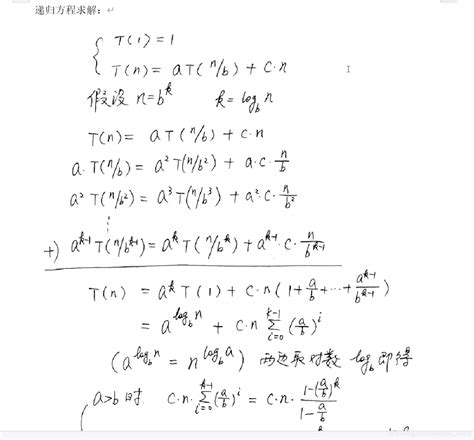 递归方程求解：
T(1)=1
T(n)= aT(n/b) + c·n
假设 n=b^k k=log_b n
T(n)= aT(n/b) + c·n
a·T(n/b)= a²T(n/b²) + a·c·n/b
a²T(n/b²)= a³T(n/b³) + a²·c·n/b²
⋮
+) a^(k-1) T(n/b^(k-1))= a^k T(n/b^k) + a^(k-1)·c·n/b^(k-1)
T(n) = a^k T(1) + c·n(1+a/b+···+a^(k-1)/b^(k-1))
= a^(log_b n) + c·n Σ_(i=0)^(k-1) (a/b)^i
(a^(log_b n) = n^(log_b a)) 两边取对数 log_b 即得
a>b 时 c·n·Σ_(i=0)^(k-1) (a/b)^i = c·n· (1-(a/b)^k)/(1-a/b)